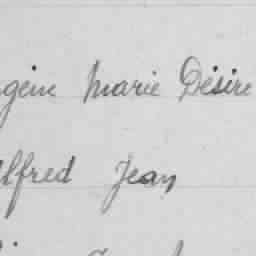 gène Marie Désiré
Alfred Jean